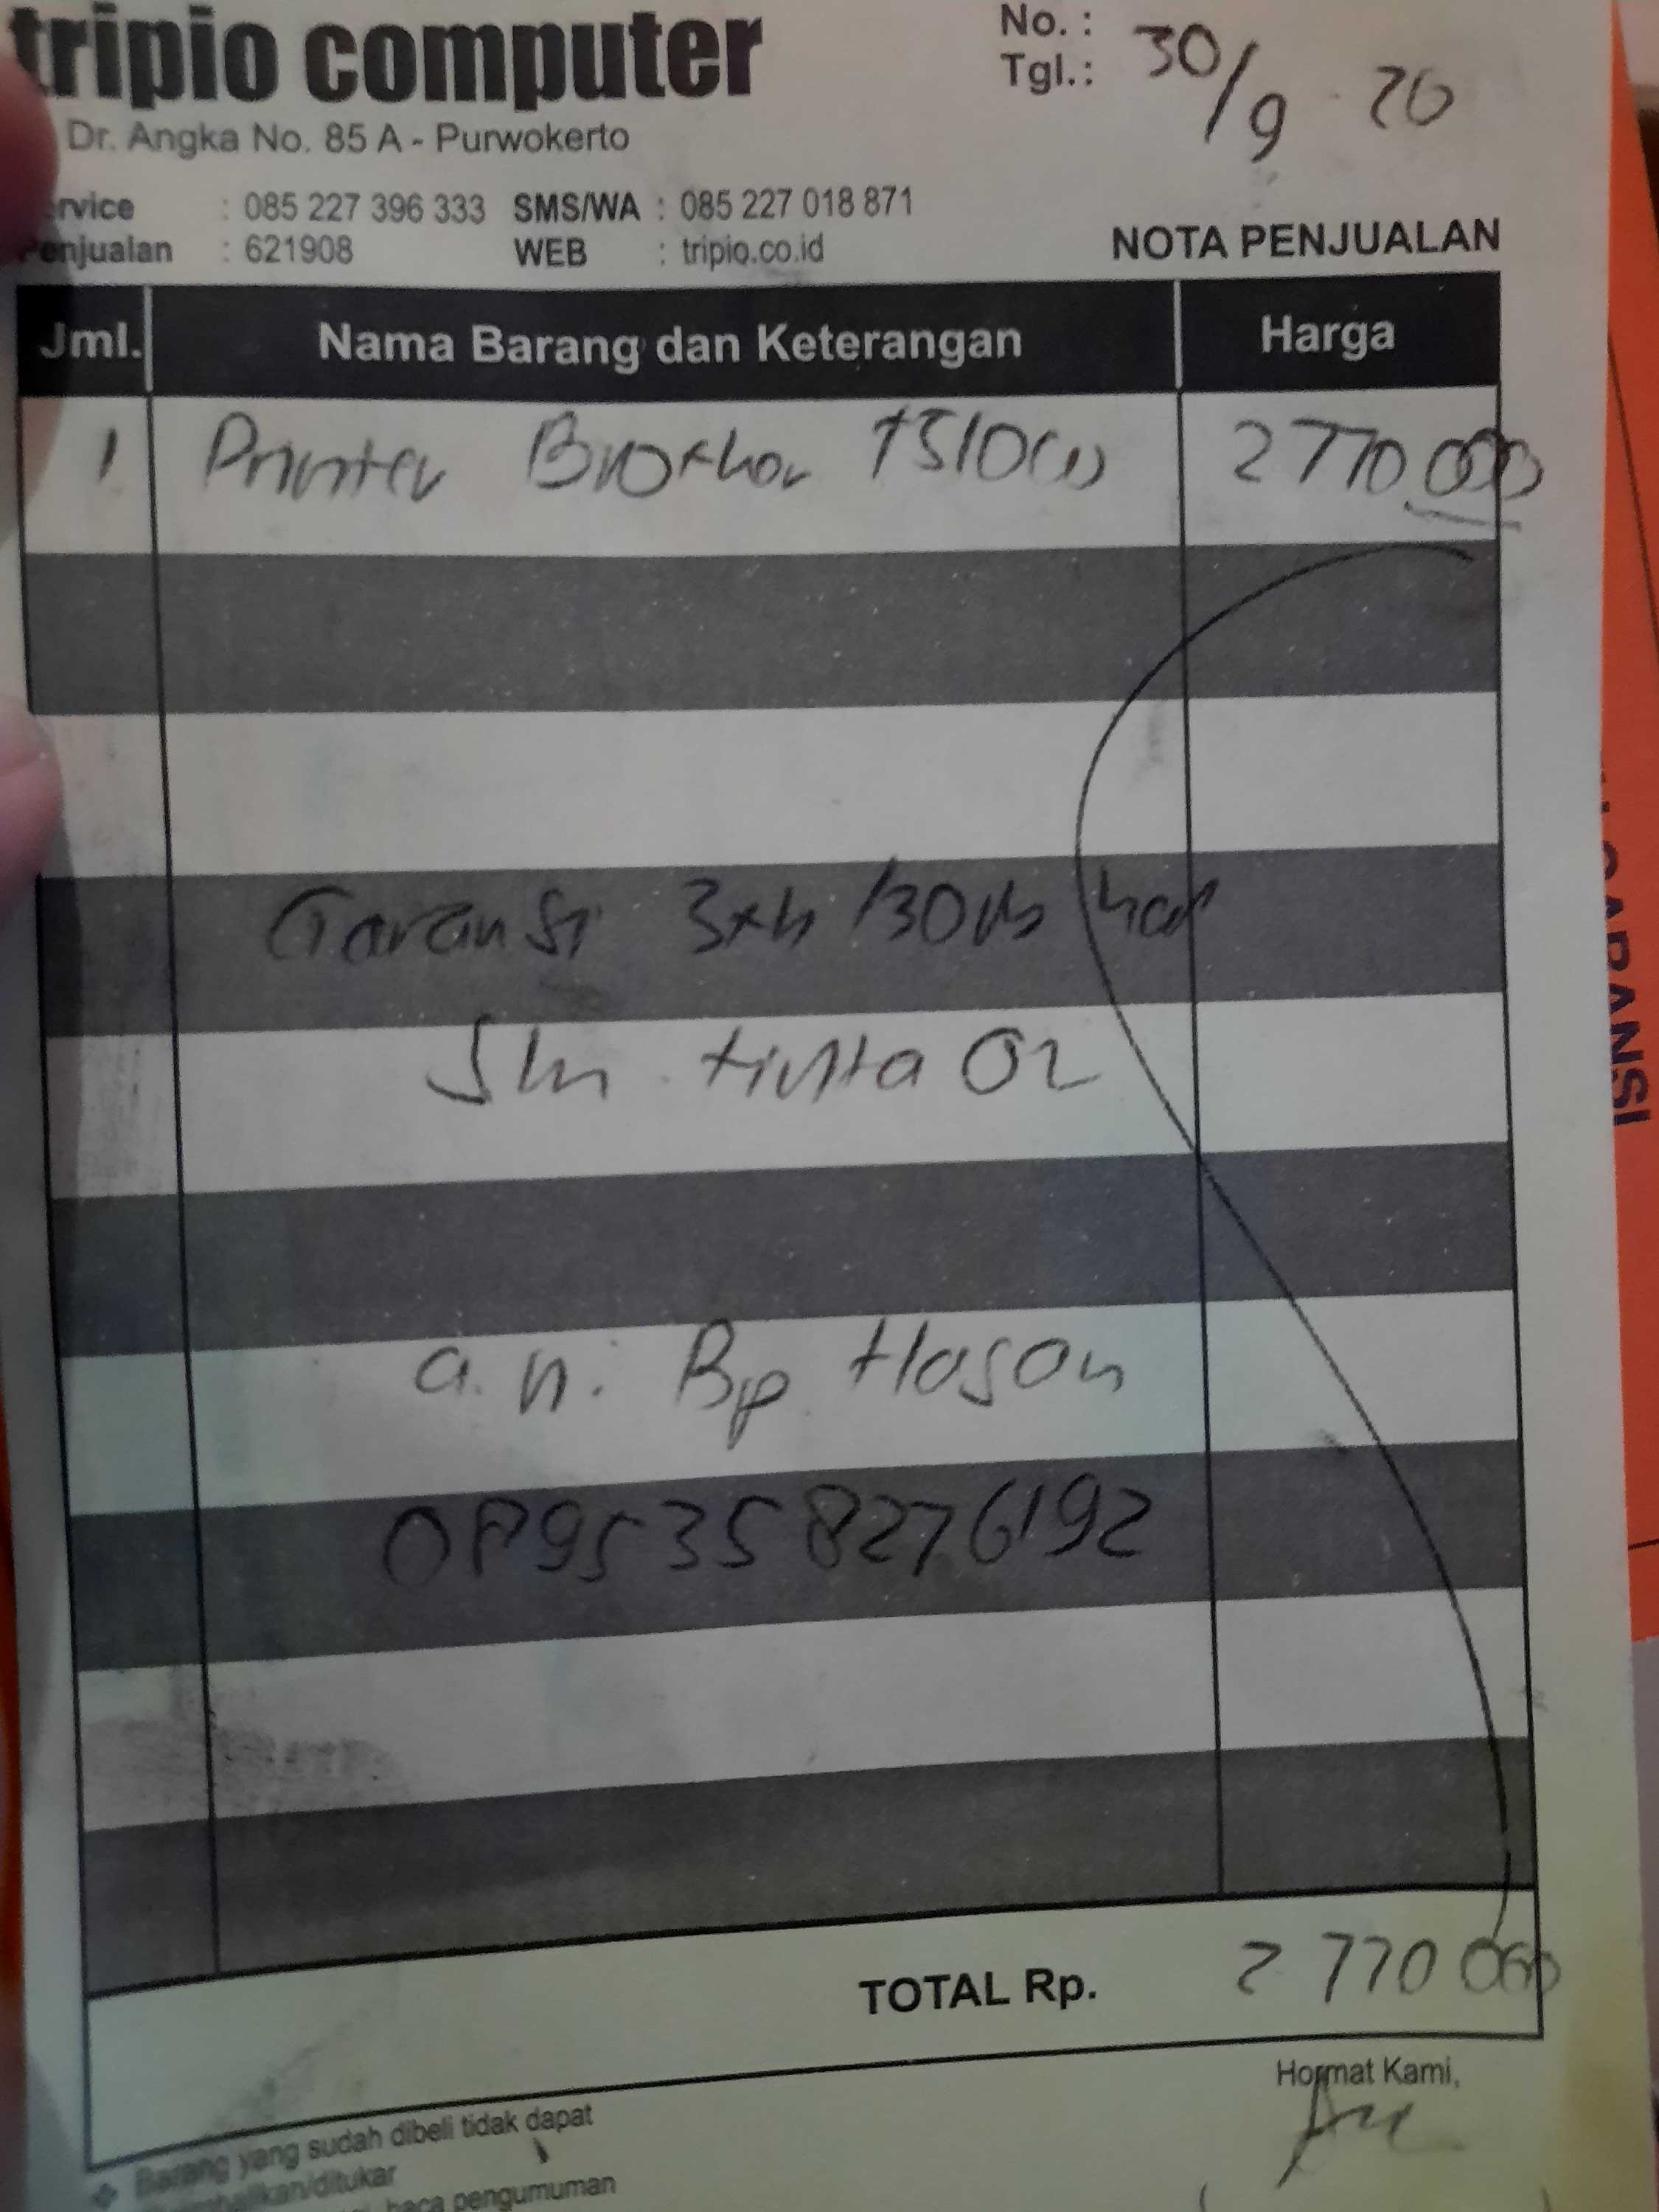 tripio computer
Dr. Angka No. 85 A - Purwokerto
No. :
Tgl.: 30/9 20
rvice : 085 227 396 333 SMS/WA : 085 227 018 871
enjualan : 621908 WEB : tripio.co.id
NOTA PENJUALAN
Jml. Nama Barang dan Keterangan Harga
1 Printer Brother T510W 2770.000
Garansi 3th /30rb
tinta Or
a.n. Bp Hasan
0895358276192
TOTAL Rp. 2 770 000
Hormat Kami,
Barang yang sudah dibeli tidak dapat
mbalikan/ditukar
baca pengumuman
GARANSI